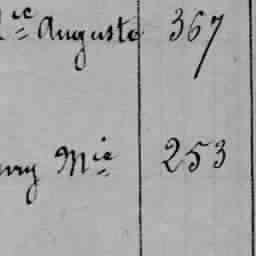 Auguste 367
Mie 253